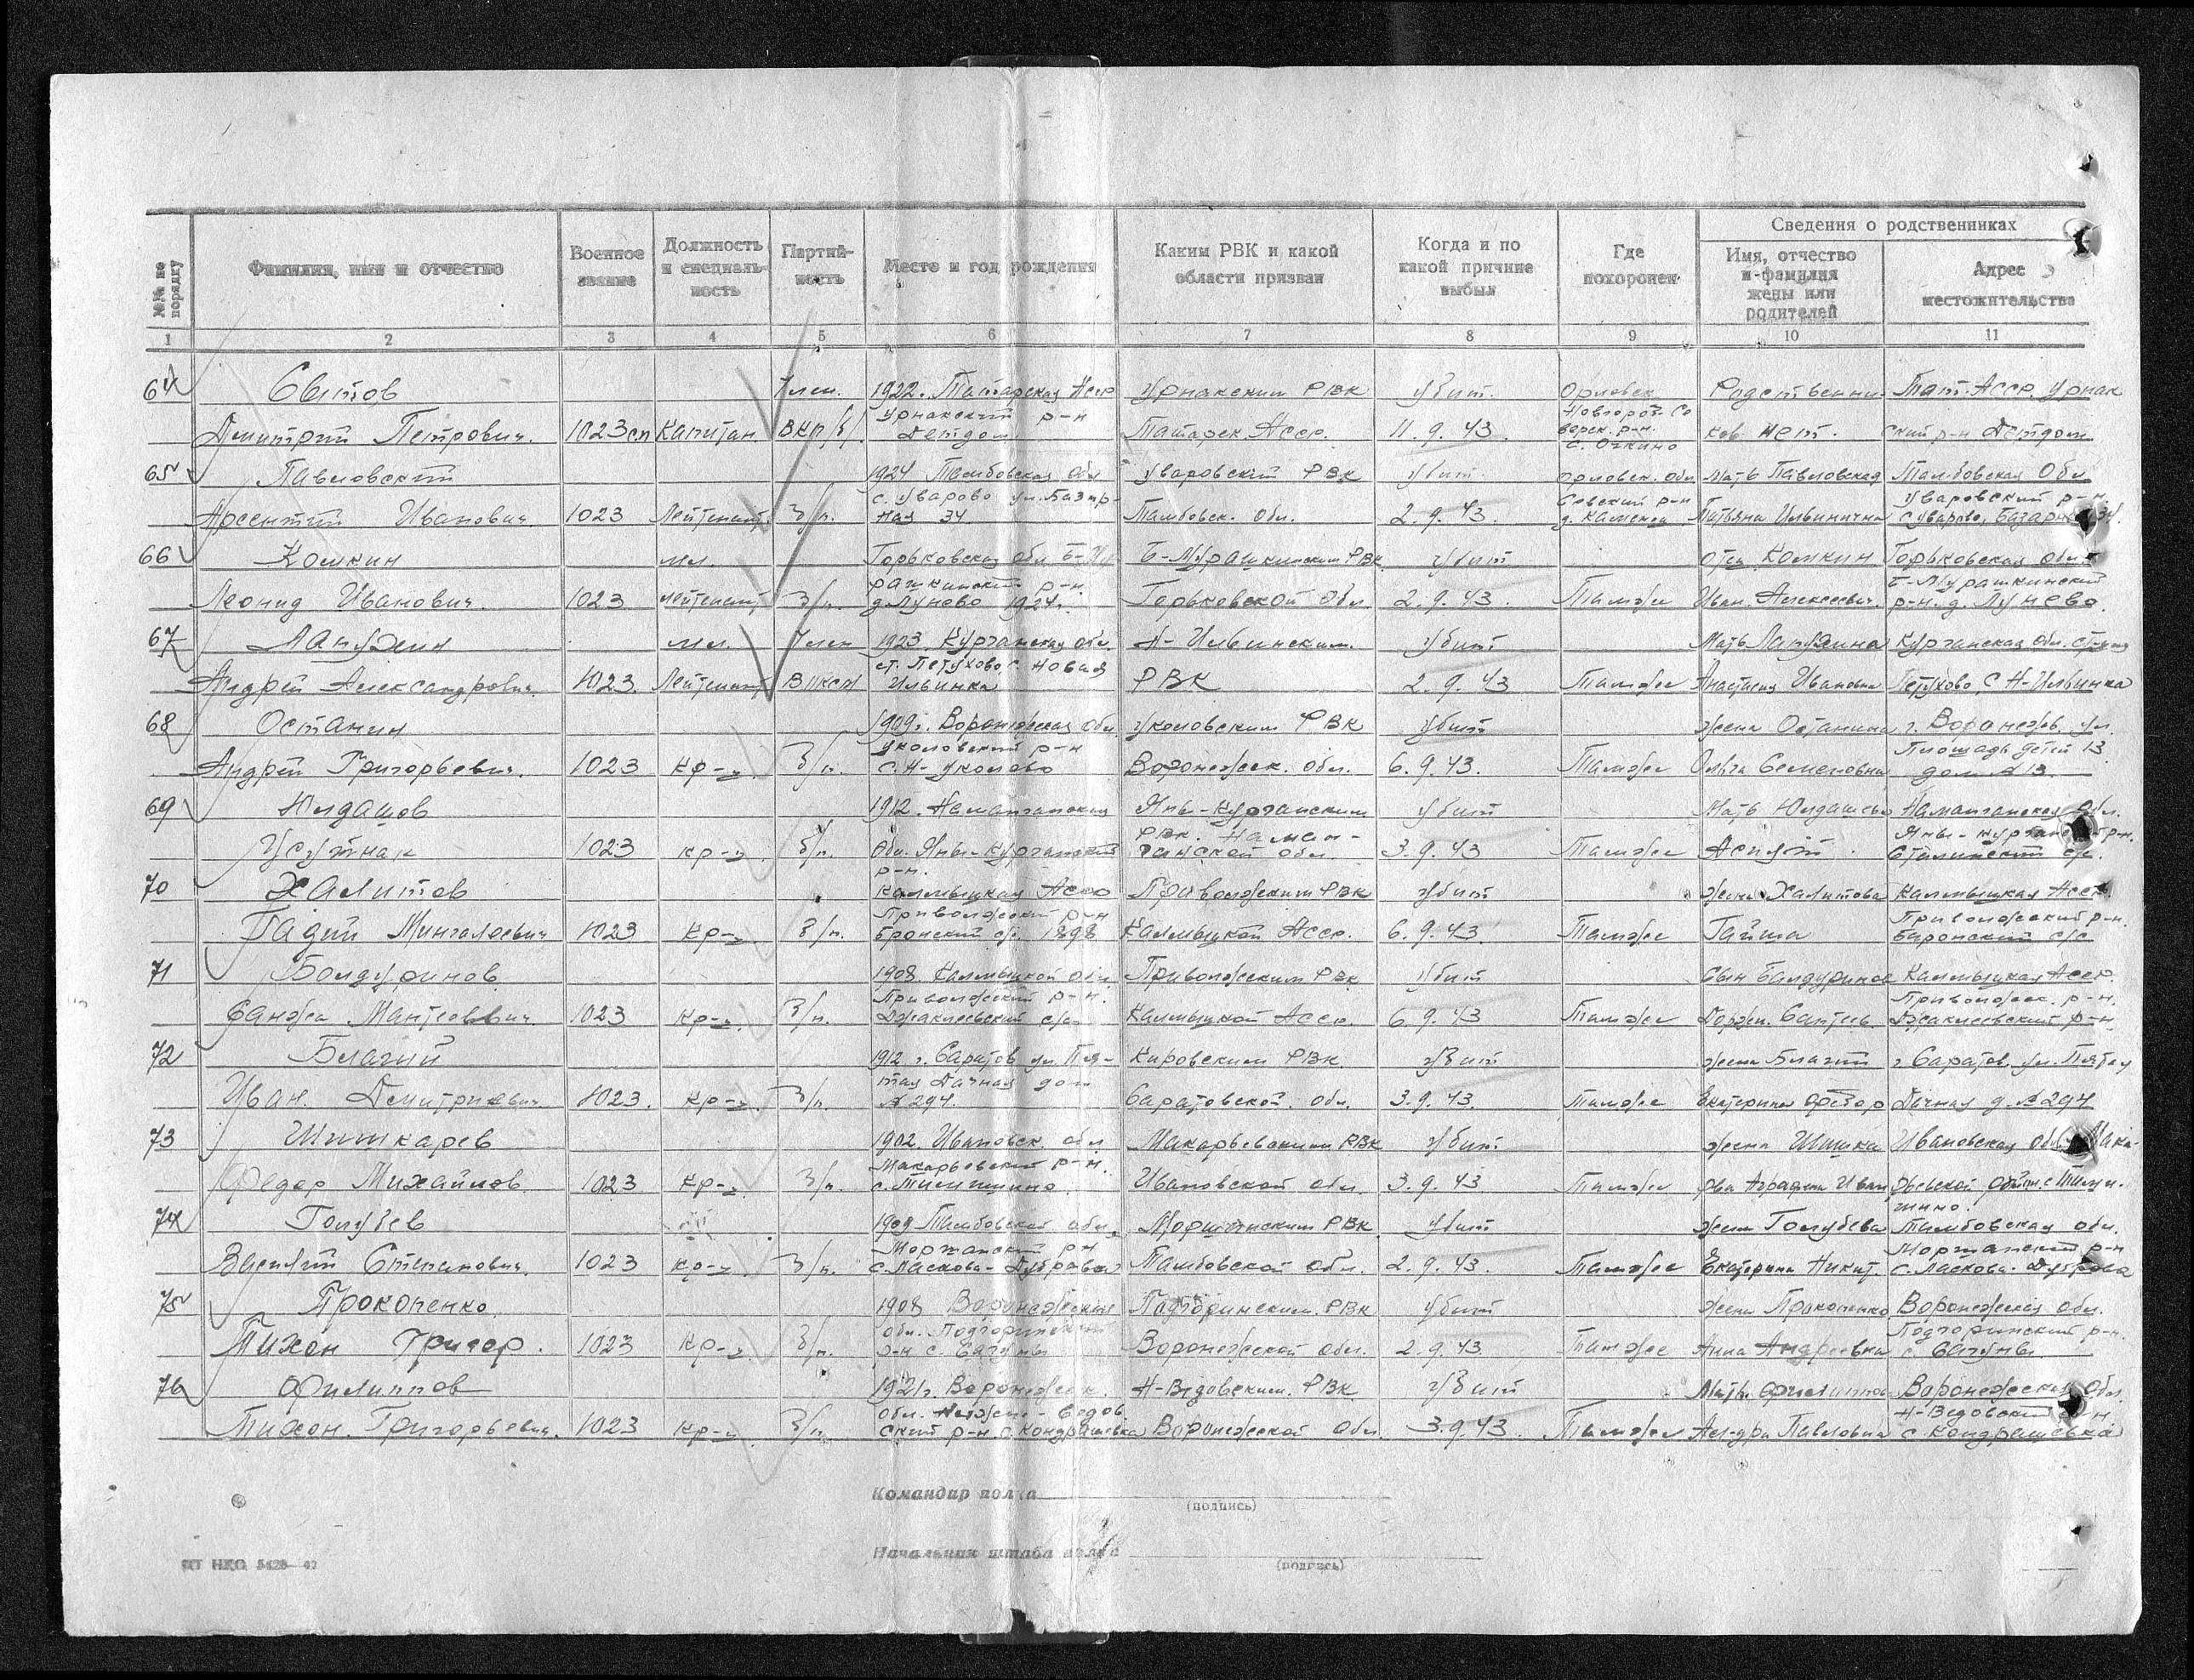 №№ по порядку
Фамилия, имя и отчество
Военное звание
Должность и специальность
Партийность
Место и год рождения
Каким РВК и какой области призван
Когда и по какой причине выбыл
Где похоронен
Сведения о родственниках
Имя, отчество и фамилия жены или родителей
Адрес местожительства
1 2 3 4 5 6 7 8 9 10 11
64 Свитов Член 1922. Татарская Асср Урнакским РВК Убит. Орловск Родственни- Тат. Асср Урнак
Урнакский р-н Новгород. Се
Дмитрий Петрович. 1023 сп Капитан ВКП/б/ Детдом Татарск Асср. 11.9.43. верск. р-н. ков нет. ский р-н Детдом
с. Очкино
65 Павловский 1924 Тамбовская Обл Уваровский РВК Убит Орловск. Обл Мать Павловская Тамбовская Обл
с. Уварово ул. Базар- Севский р-н Уваровский р-н.
Арсентий Иванович 1023 Лейтенант б/п. ная 34 Тамбовск. Обл. 2.9.43. д. Каменка Татьяна Ильинична с Уварово, Базарная 34.
66 Комкин мл. Горьковская обл Б-Му Б-Мурашкинским РВК Убит отец Комкин Горьковская обл
рашкинский р-н. Б-Мурашкинский
Леонид Иванович. 1023 лейтенант б/п. д. Луново 1924г. Горьковской Обл. 2.9.43. Там же Иван Алексеевич. р-н. д. Лунево.
67 Лапухин мл. Член 1923. Курганская Обл. Н-Ильинским. Убит Мать Курганская Обл.
ст. Петухово, с. Новая
Андрей Александрович. 1023. Лейтенант ВЛКСМ Ильинка РВК 2.9.43 Там же Анастасия Ивановна Петухово, с Н-Ильинка
68 Останин 1909г. Воронежская Обл. Уколовским РВК Убит жена Останина г. Воронеж, ул.
Уколовский р-н Площадь Детей 13
Андрей Григорьевич. 1023 кр-ц. б/п. с. Н-Уколово Воронежск. Обл. 6.9.43. Там же Ольга Семеновна дом № 13
69 Юлдашов 1912. Наманганская Яны-Курганским Убит Мать Юлдашева Наманганская Обл.
РВК. Наман- Яны-Курганский р-н.
1023 кр-ц. б/п. Обл. Яны-Курганский ганской Обл. 3.9.43 Там же Сталинский с/с.
р-н.
70 Халитов Калмыцкая Асср Приволжским РВК Убит жена Халитова Калмыцкая Асср.
Приволжский р-н Приволжский р-н.
Гадий 1023 кр-ц б/п. с/с. 1898 Калмыцкой Асср. 6.9.43. Там же Гайша с/с
71 Болдуринов 1908. Калмыцкой Обл. Приволжским РВК Убит Сын Балдуринов Калмыцкая Асср
Приволжский р-н. Приволжск. р-н.
Санжа 1023 кр-ц. б/п. с/с Калмыцкой Асср. 6.9.43 Там же р-н.
72 Благий 1912 г. Саратов ул. Пя- Кировским РВК. Убит жена Благий г. Саратов, ул. Пятая
тая Дачная дом
Иван. Дмитриевич. 1023. кр-ц. б/п. № 294. Саратовской. Обл. 3.9.43. Там же Екатерина Федор Дачная д. № 294
73 Шишкарев 1902 Ивановск. обл Макарьевским РВК Убит жена Шишка Ивановская Обл. Мака-
Макарьевский р-н.
Федор Михайлов 1023 кр-ц. б/п. Ивановской обл. 3.9.43 Там же рева Аграфена Иван
шино.
74 Голубев 1909 Тамбовской обл. Моршанским РВК Убит жена Голубева Тамбовская обл.
Моршанский р-н Моршанский р-н
Василий Степанович. 1023 кр-ц. б/п. с. Ласкова-Дубрава Тамбовской Обл. 2.9.43. Там же Екатерина Никит. с. Ласкова-Дубрава
75 Прокопенко 1908 Воронежская Подгоринским. РВК Убит жена Прокопенко Воронежская обл.
обл. Подгоринский Подгоринский р-н.
Тихон Григор. 1023 кр-ц. б/п. р-н с. Сагуны Воронежской Обл. 2.9.43. Там же Анна Андреевна с. Сагуны.
76 Филиппов 1921г. Воронежск. Н-Ведовским. РВК Убит Мать Филиппов Воронежская Обл.
обл. Нижне-Ведов Н-Ведовский р-н.
Тихон. Григорьевич. 1023 кр-ц б/п ский р-н с. Кондрашевка Воронежской Обл 3.9.43. Там же Ал-дра Павловна с Кондрашевка
Командир полка
(подпись)
Начальник штаба полка
(подпись)